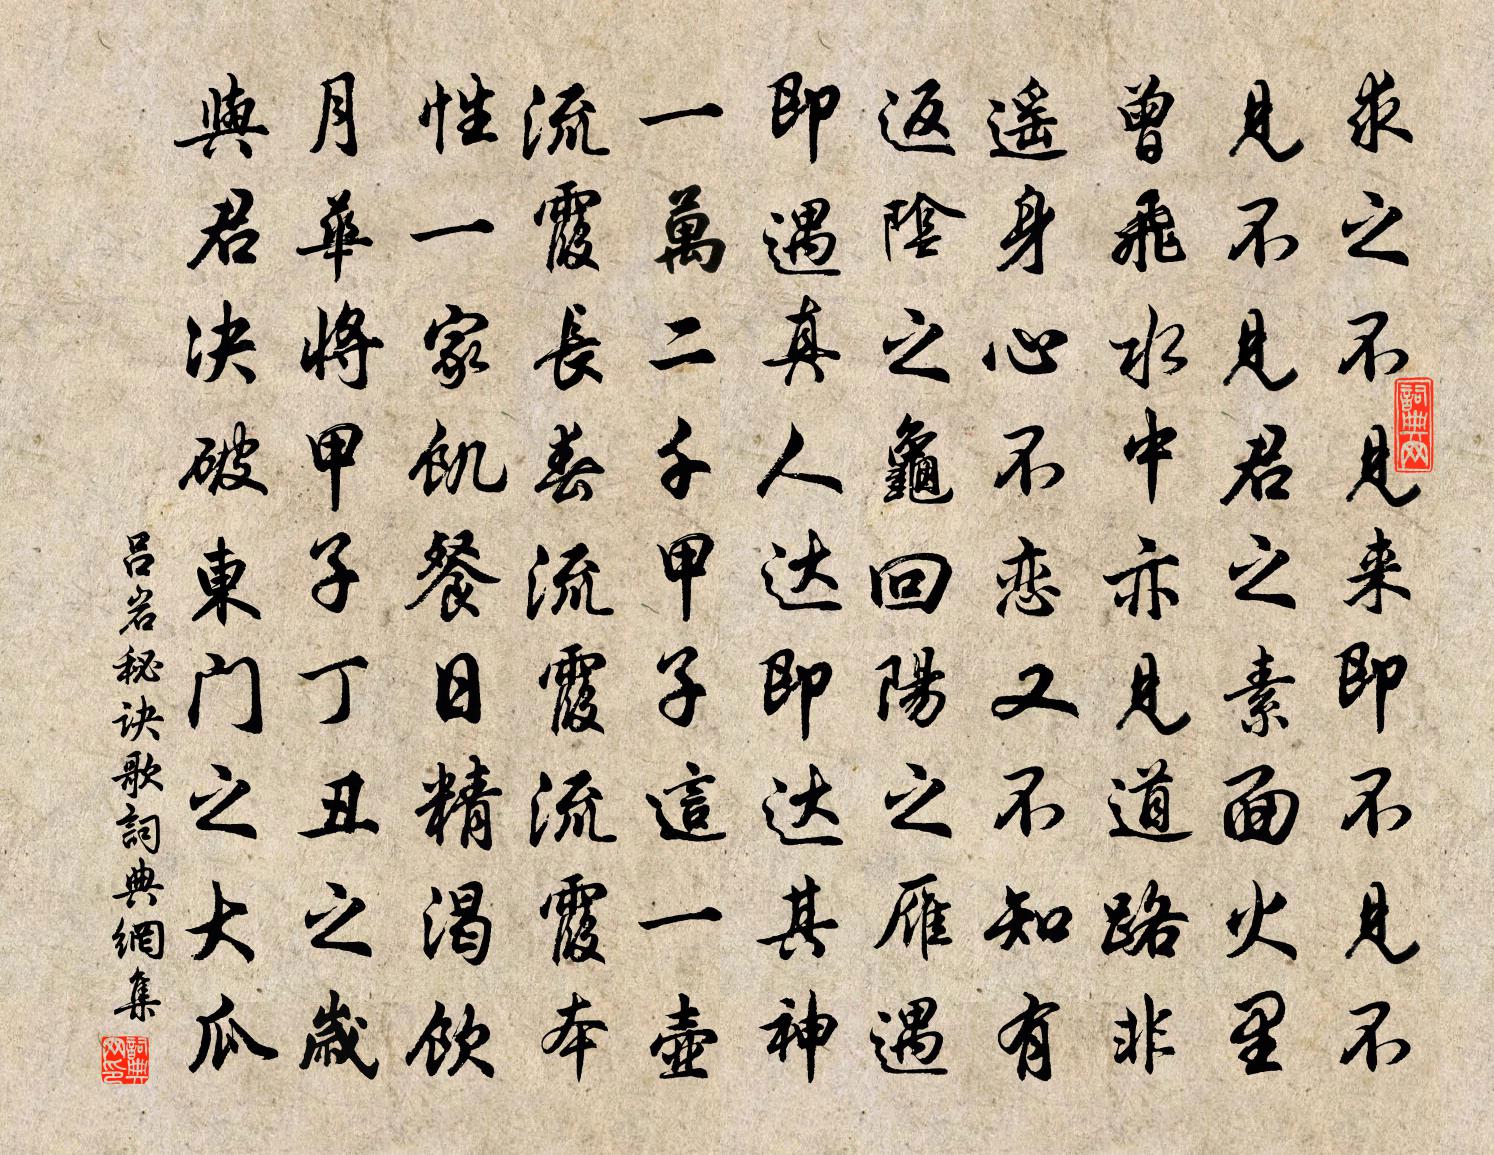 求之不見来即不見不
見不見君之素面火里
曾飛水中亦見道路非
遥身心不恋又不知有
返陰之龜回陽之雁遇
即遇真人达即达其神
一萬二千甲子這一壺
流霞長春流霞流霞本
性一家飢餐日精渴飲
月華將甲子丁丑之歲
與君決破東門之大瓜
吕岩秘诀歌詞典網集
詞典网
詞典网印